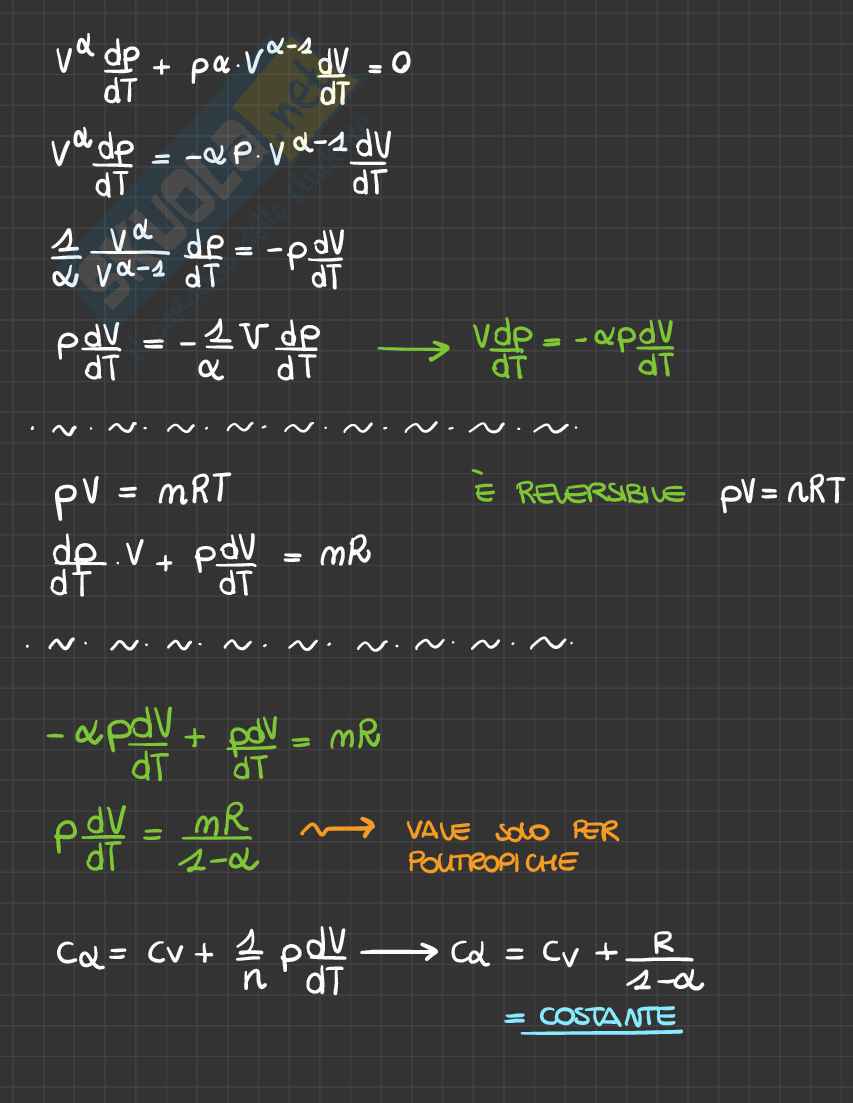 V^α dp/dT + pα·V^(α-1) dV/dT = 0
V^α dp/dT = -αp·V^(α-1) dV/dT
1/α V^α/V^(α-1) dp/dT = -p dV/dT
p dV/dT = -1/α V dp/dT → V dp/dT = -αp dV/dT
pV = nRT È REVERSIBILE pV = nRT
dp/dT · V + p dV/dT = nR
-αp dV/dT + p dV/dT = nR
p dV/dT = nR/(1-α) → VALE SOLO PER
POLITROPICHE
Cα = Cv + 1/n p dV/dT → Cα = Cv + R/(1-α)
= COSTANTE
SKUOLA.net